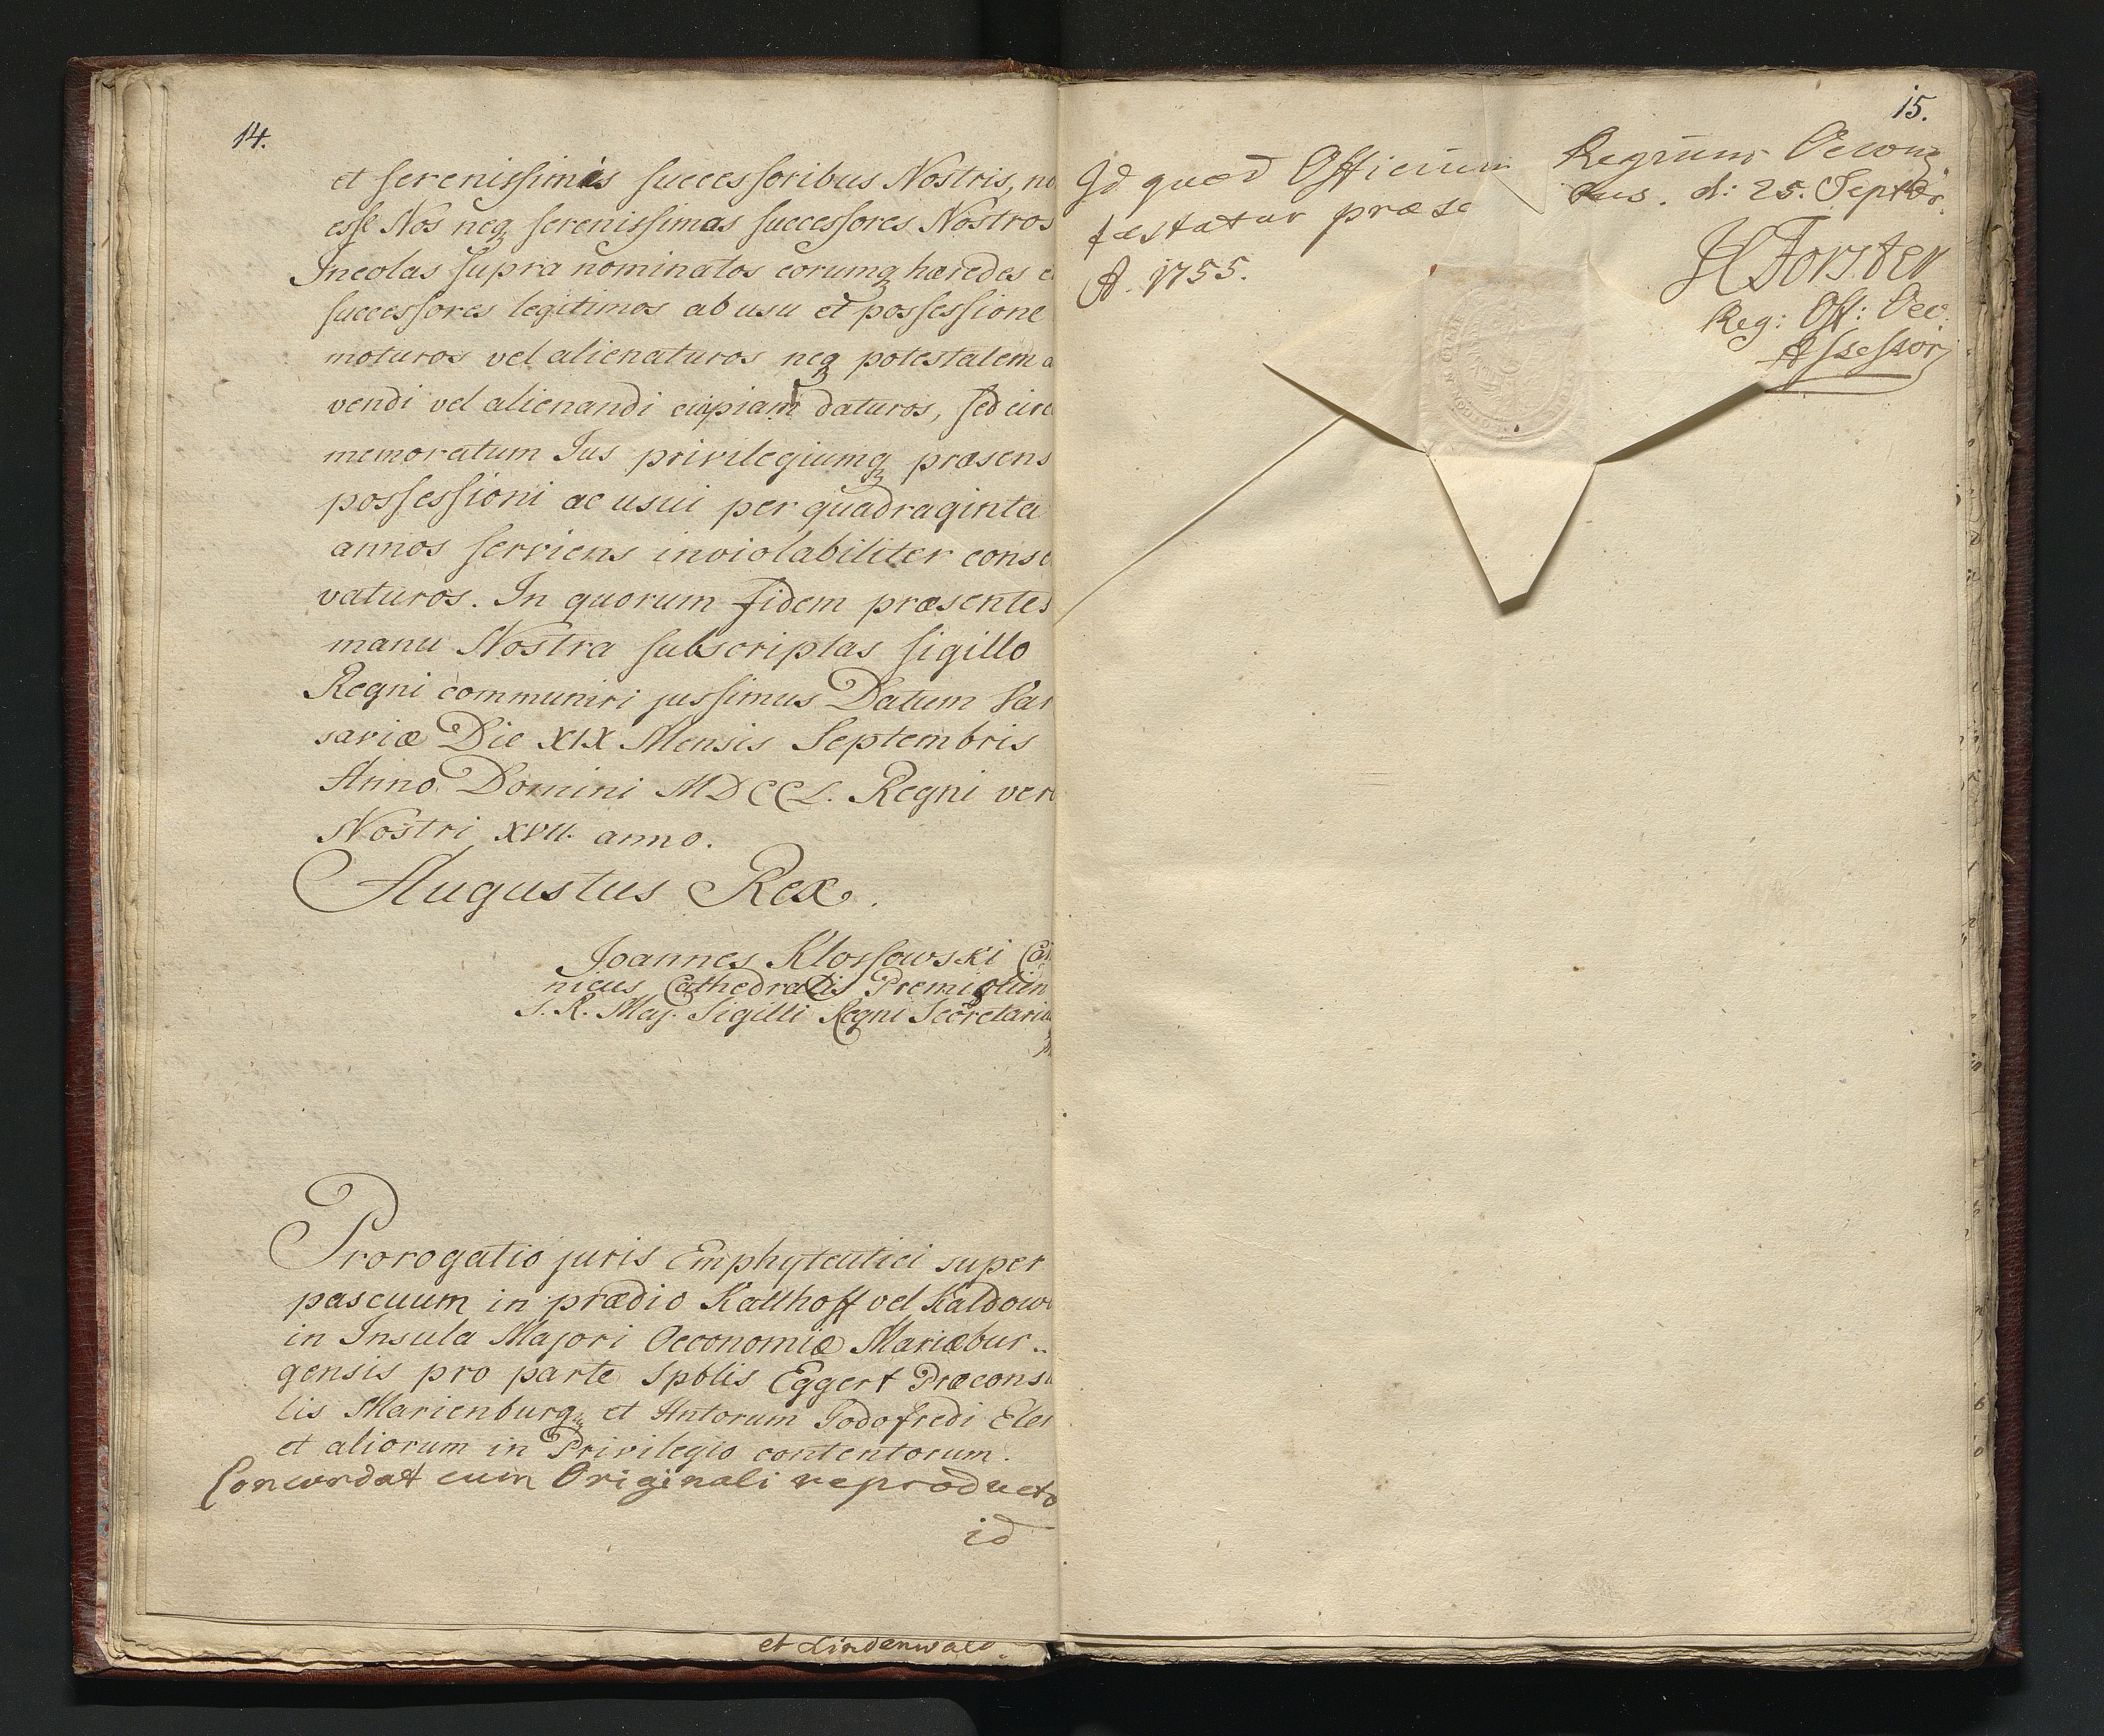 14.
et serenissimis successoribus Nostris, no
esse Nos neq serenissimas successores Nostros
Incolas supra nominatos eorumq hæredes e
successores legitimos ab usu et possessione
moturos vel alienaturos neq potestatem a
vendi vel alienandi cuipiam daturos, sed circ
memoratum Jus privilegiumq præsens
possessioni ac usui per quadraginta
annos serviens inviolabiliter conse
vaturos. In quorum fidem præsentes
manu Nostra subscriptas sigillo
Regni communiri jussimus Datum Var
saviæ Die XIX Mensis Septembris
Anno Domini MDCCL. Regni vero
Nostri XVII. anno.
Augustus Rex.
Joannes Klossowski Ca
nicus Cathedralis Premislien
S. R. Maj. Sigilli Regni Secretariu
Prorogatio juris Emphyteutici super
pascuum in prædio Kalthoff vel Kaldowo
in Insula Majori Oeconomiæ Mariæbur..
gensis pro parte Spblis Eggert Præconsu
lis Marienburg et Antorum Godofredi Eler
et aliorum in Privilegio contentorum.
Concordat cum Originali reproducto
id
et Lindenwald.
15.
Id quod Officium Regium Oecon
testatur præse tus. d: 25. Septbr.
A. 1755.
Forster
Reg: Off: Oec:
Assessor